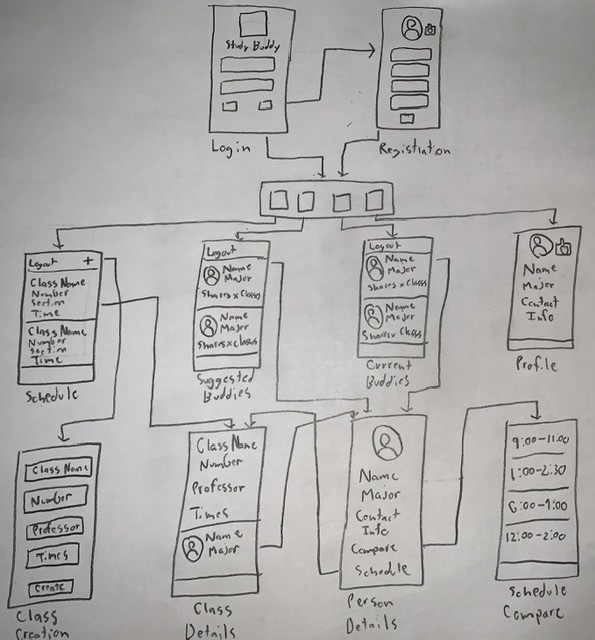 Study Buddy
Login
Registration
Logout +
Class Name
Number
Section
Time
Class Name
Number
Section
Time
Schedule
Logout
Name
Major
Shares x Class
Name
Major
Shares x Class
Suggested
Buddies
Logout
Name
Major
Shares x Class
Name
Major
Shares x Class
Current
Buddies
Name
Major
Contact
Info
Profile
Class Name
Number
Professor
Times
Create
Class
Creation
Class Name
Number
Professor
Times
Name
Major
Class
Details
Name
Major
Contact
Info
Compare
Schedule
Person
Details
9:00-11:00
1:00-2:30
6:00-9:00
12:00-2:00
Schedule
Compare